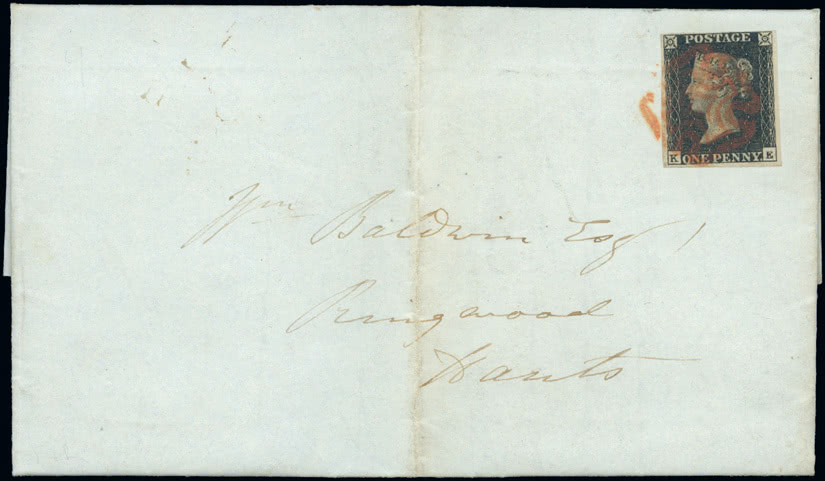 POSTAGE
K ONE PENNY E
Wm Baldwin Esq
Ringwood
Hants